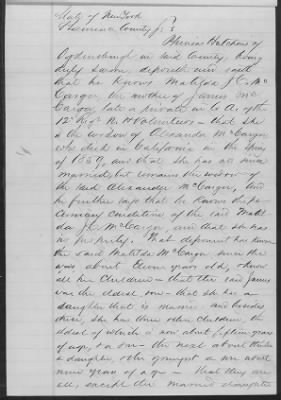 State of New York
Lawrence County ss
Hutchins of
Ogdensburgh in said County, being
duly sworn, deposeth and saith
that he knows Matilda J. C. Mc
Cargar, the mother of James Mc
Cargar, late a private in Co A. of the
12th Regt N. Y Volunteers - that she
is the widow of Alexander McCargar
who died in California in the Spring
of 1859, and that she has not since
married, but remains the widow of
the said Alexander McCargar, and
he further says that he knows the pe-
cuniary condition of the said Matil-
da J. C. McCargar, and that she has
no property. That deponent has known
the said Matilda McCargar since she
was about Eleven years old, & knows
all her Children - that the said James
was the eldest son - that she has a
daughter that is married and besides
these, she has three other Children, the
eldest of which is now about fifteen years
of age, & a son - the next about
a daughter, & the youngest a son about
nine years of age - that they are
all, except the married daughter